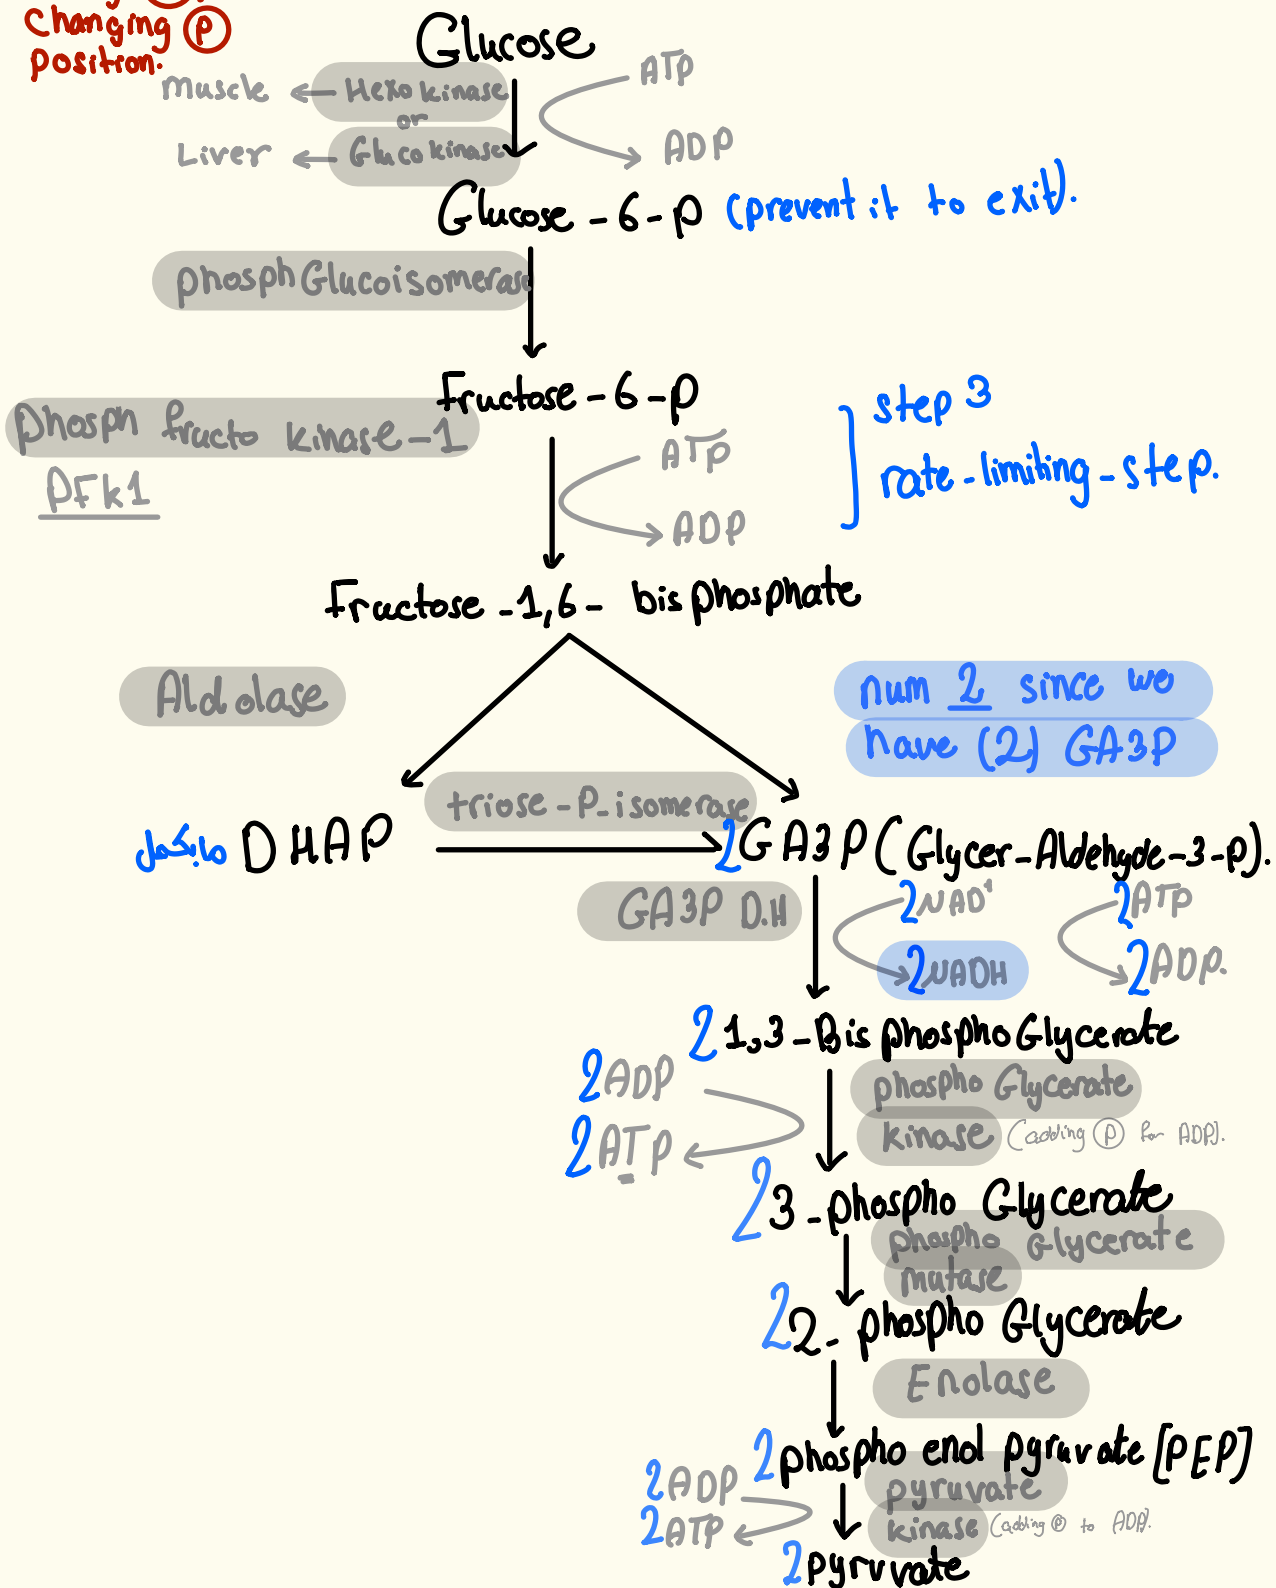 Changing P
position.
Glucose
muscle ← Hexokinase
or
Liver ← Glucokinase
ATP
ADP
Glucose-6-p (prevent it to exit).
phosphGlucoisomerase
Fructose-6-p
phosph fructo kinase-1
PFk1
ATP
ADP
step 3
rate-limiting-step.
Fructose-1,6- bisphosphate
Aldolase
num 2 since we
have (2) GA3P
triose-P-isomerase
مابكمل DHAP
2GA3P (Glycer-Aldehyde-3-p).
GA3P D.H
2NAD+
2NADH
2ATP
2ADP.
2 1,3-BisphosphoGlycerate
2ADP
2ATP
phospho Glycerate
kinase (adding P for ADP).
2 3-phospho Glycerate
phospho Glycerate
mutase
2 2-phospho Glycerate
Enolase
2phospho enol pyruvate [PEP]
2ADP
2ATP
pyruvate
kinase (adding P to ADP).
2pyruvate